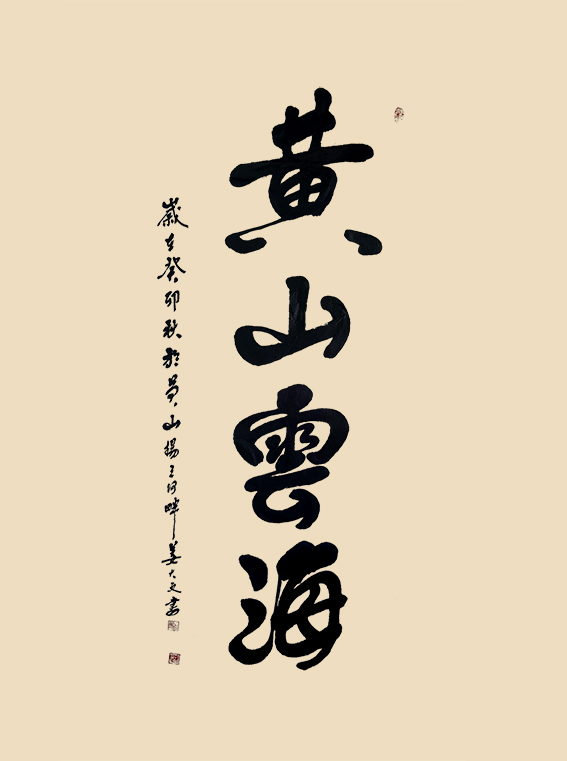 黄山雲海
歲在癸卯秋於黄山楊之河畔姜大文書